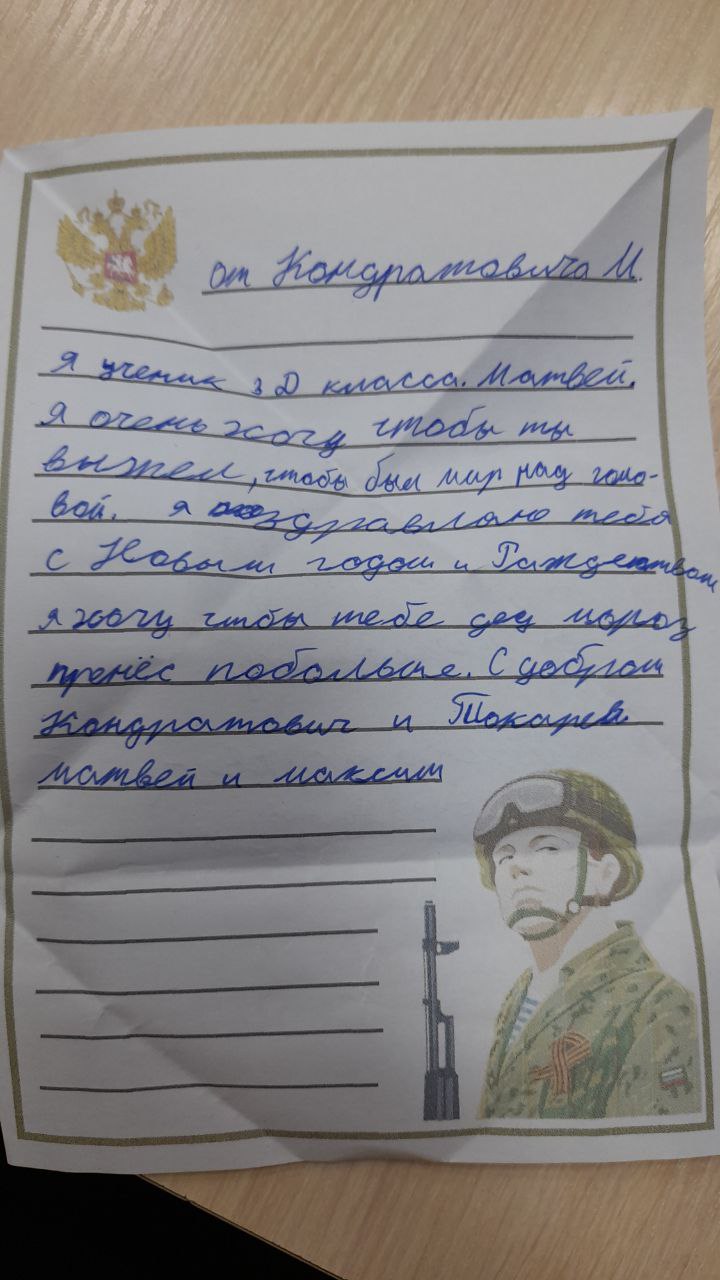 от Кондратовича М.
Я ученик 3 Д класса. Матвей.
Я очень хочу чтобы ты
выжел, чтобы был мир над голо-
вой. я поздравляю тебя
с Новым годом и Раждентвом
я хочу чтбы тебе дед мороз
пренёс побольше. С добром
Кондратович и Токарев.
матвей и максим